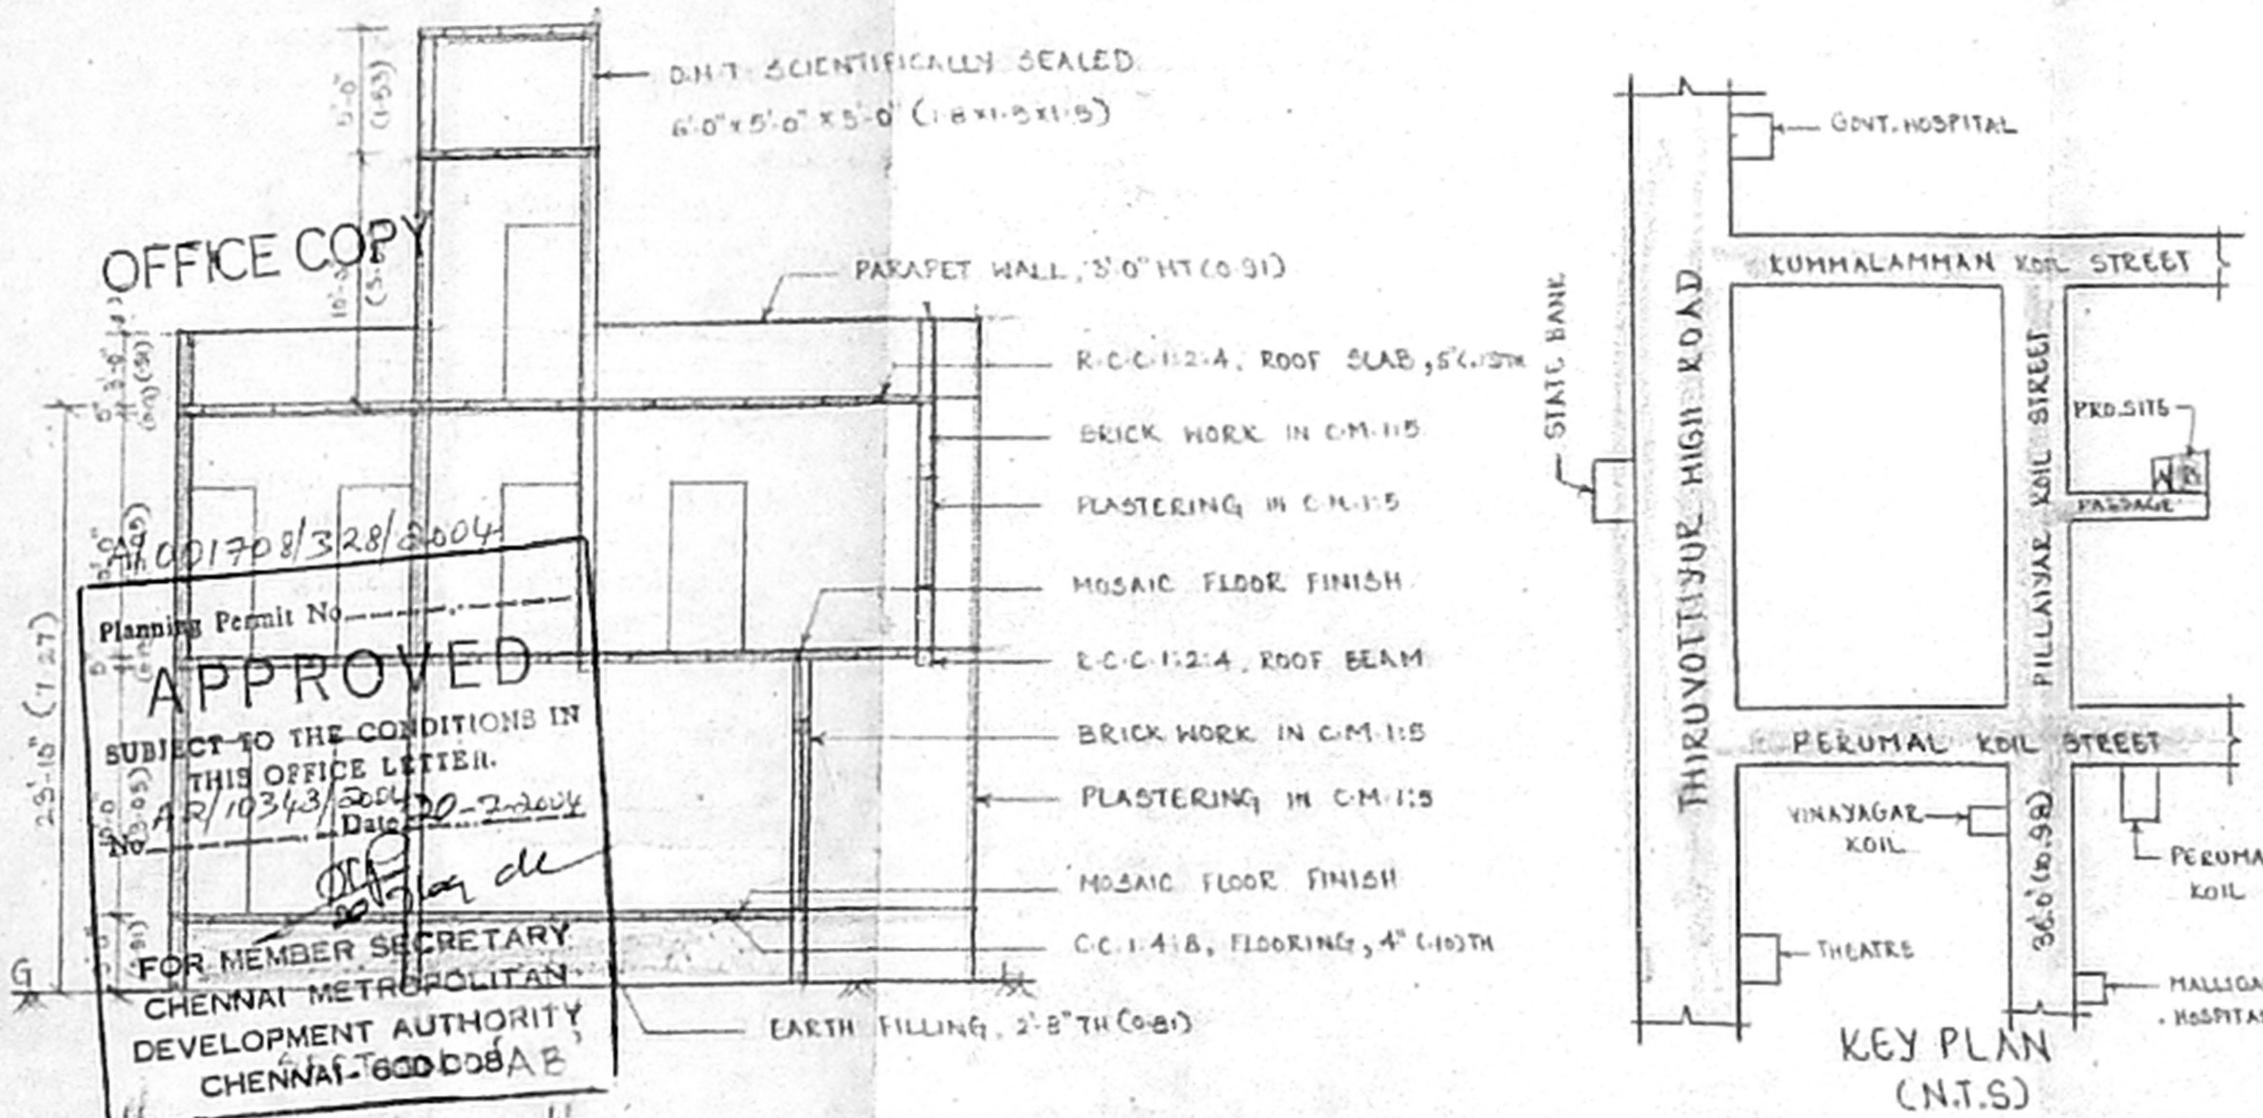 5'-0"
(1.53)
O.H.T. SCIENTIFICALLY SEALED
6'-0" x 5'-0" x 5'-0" (1.8x1.5x1.5)
OFFICE COPY
PARAPET WALL, 3'0" HT (0.91)
R.C.C.1:2:4, ROOF SLAB, 5"(.13TH
BRICK WORK IN C.M.1:5
PLASTERING IN C.M.1:5
MOSAIC FLOOR FINISH
R.C.C.1:2:4, ROOF BEAM
BRICK WORK IN C.M.1:5
PLASTERING IN C.M.1:5
MOSAIC FLOOR FINISH
C.C.1:4:8, FLOORING, 4" (.10)TH
EARTH FILLING, 2'-8" TH (0.81)
23'-10" (7.27)
G
Planning Permit No
APPROVED
SUBJECT TO THE CONDITIONS IN
THIS OFFICE LETTER.
No A2/10343/2004 Date 20-7-2004
FOR MEMBER SECRETARY
CHENNAI METROPOLITAN
DEVELOPMENT AUTHORITY
CHENNAI-600 008
GOVT. HOSPITAL
KUMMALAMMAN KOIL STREET
STATE BANK
THIRUVOTTIYUR HIGH ROAD
PILLAIYAR KOIL STREET
PRO.SITE
PASSAGE
PERUMAL KOIL STREET
VINAYAGAR
KOIL
36'.0" (10.98)
PERUMA
KOIL
THEATRE
MALLIGA
HOSPITA
KEY PLAN
(N.T.S)